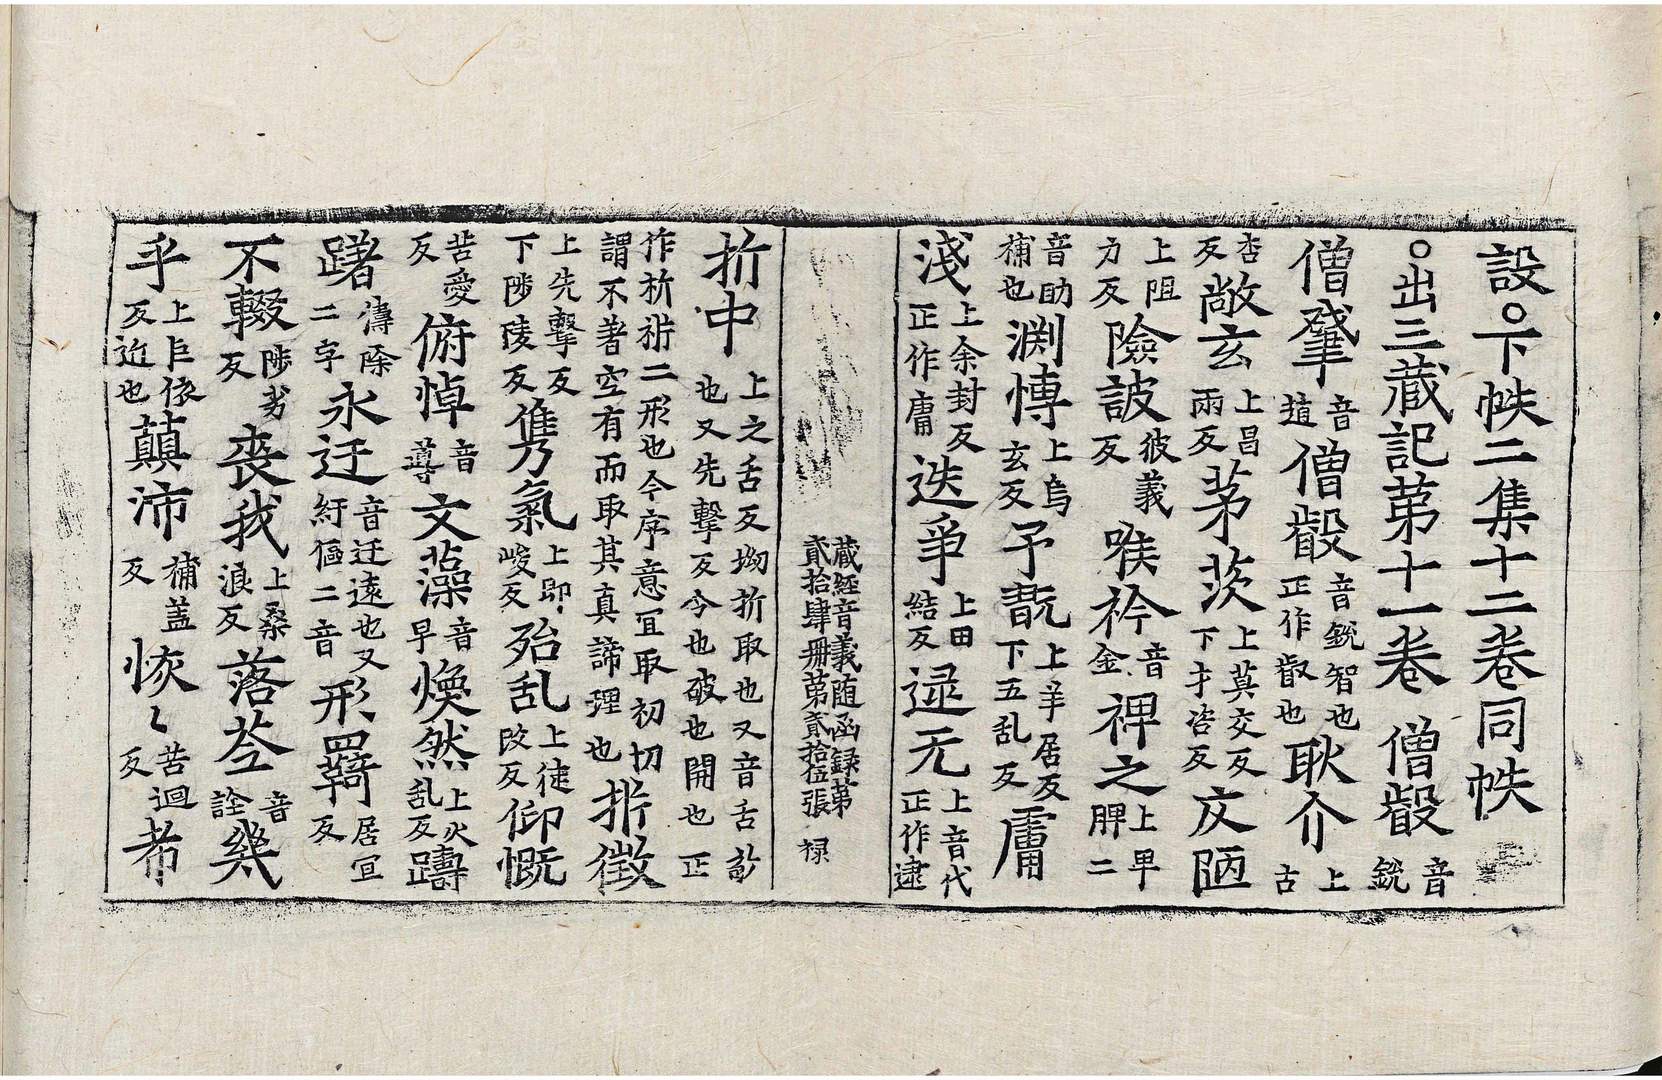 設○下帙二集十二卷同帙
○出三藏記第十一卷 僧叡音銳
僧肇音趙僧叡音銳智也正作叡也耿介上古
杏反敞玄上昌兩反茅茨上莫交反下才咨反仄陋
上阻力反險詖彼義反喉衿音金禆之上卑脾二
音助補也渊愽上烏玄反予翫上羊居反下五乱反庸
淺上余封反正作庸迭爭上田結反逯无上音代正作逮
藏經音義随函録第貳拾肆冊第貳拾伍張 禄
折中上之舌反拗折取也又音舌訜也又先擊反今也破也開也正
作析枿二形也今序意宜取初切謂不著空有而取其真諦理也折徵
上先擊反下陟陵反雋氣上即峻反殆乱上徒改反仰慨
苦愛反俯悼音導文藻音早煥然上火乱反躊
躇濤除二字永迂音迃遠也又紆傴二音形羇居宜反
不輟陟劣反喪我上桑浪反落荃音詮幾
乎上巨依反近也蘋沛補盖反恢〻苦迴反希